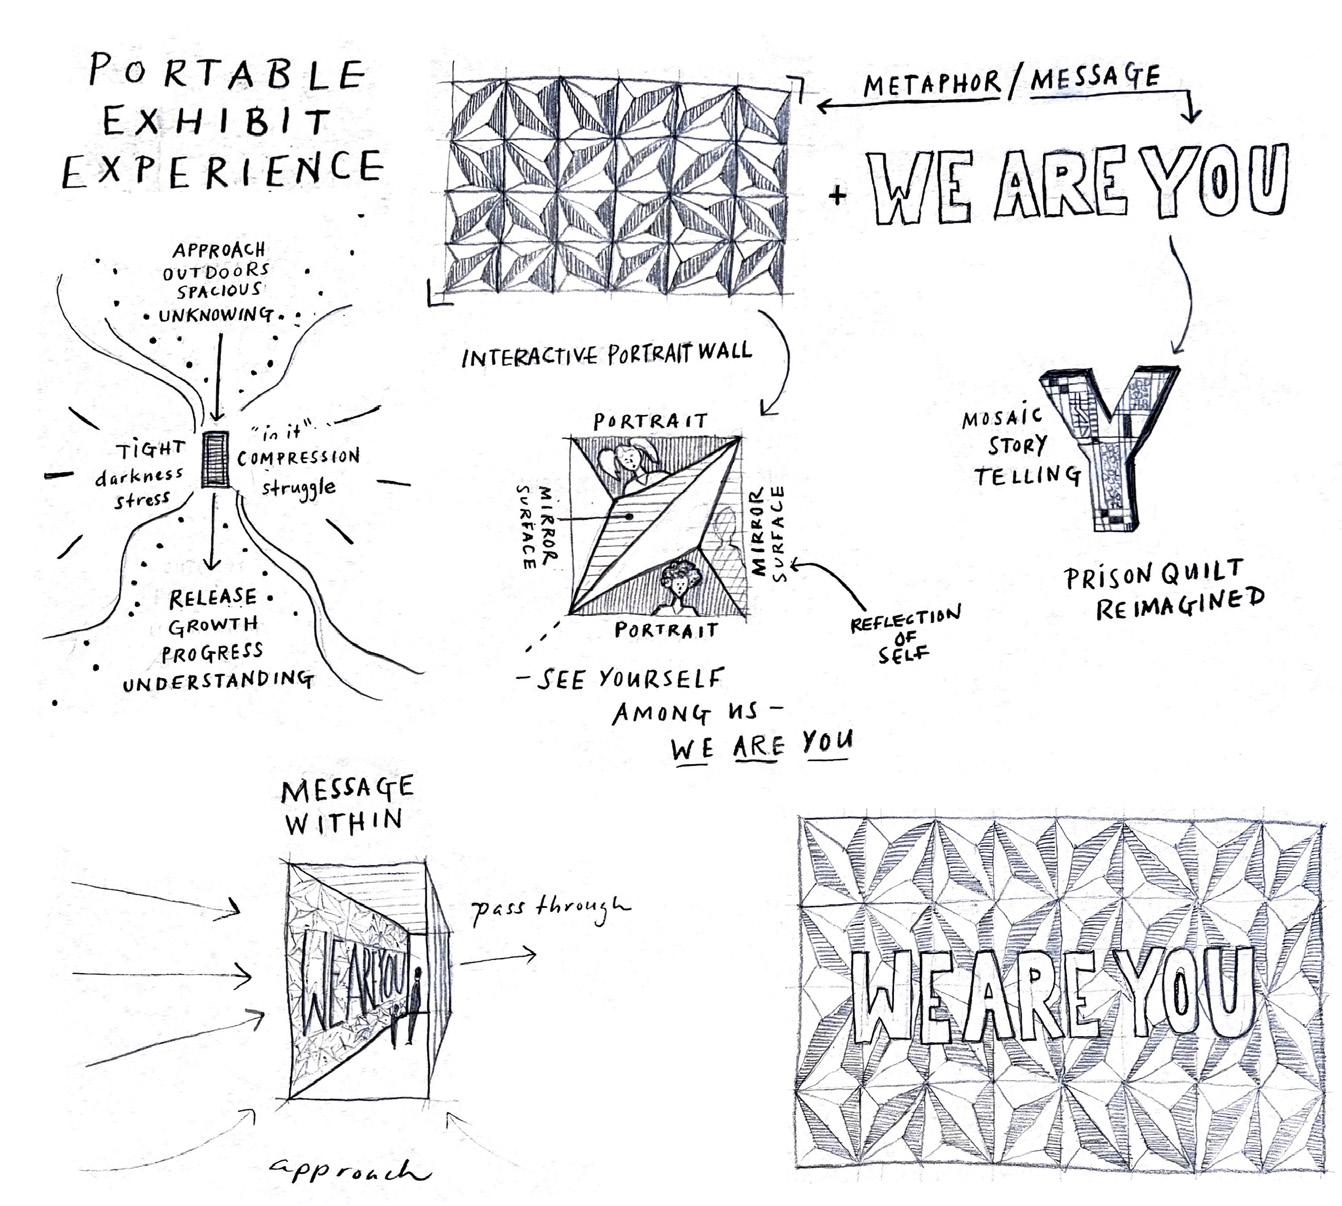 PORTABLE
EXHIBIT
EXPERIENCE
APPROACH
OUTDOORS
SPACIOUS
UNKNOWING
TIGHT
darkness
stress
"in it"
COMPRESSION
struggle
RELEASE
GROWTH
PROGRESS
UNDERSTANDING
METAPHOR/MESSAGE
+ WE ARE YOU
INTERACTIVE PORTRAIT WALL
PORTRAIT
MIRROR
SURFACE
MIRROR
SURFACE
PORTRAIT
REFLECTION
OF
SELF
- SEE YOURSELF
AMONG US -
WE ARE YOU
Y
MOSAIC
STORY
TELLING
PRISON QUILT
REIMAGINED
MESSAGE
WITHIN
WE ARE YOU
pass through
approach
WE ARE YOU